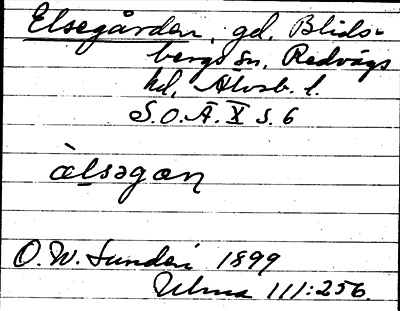 Elsegården, gd, Blids-
bergs sn, Redvägs
hd, Älvsb. l.
S.O.Ä. X s. 6
àlsǝgan
O. W. Lundén 1899
Ulma 111:256.